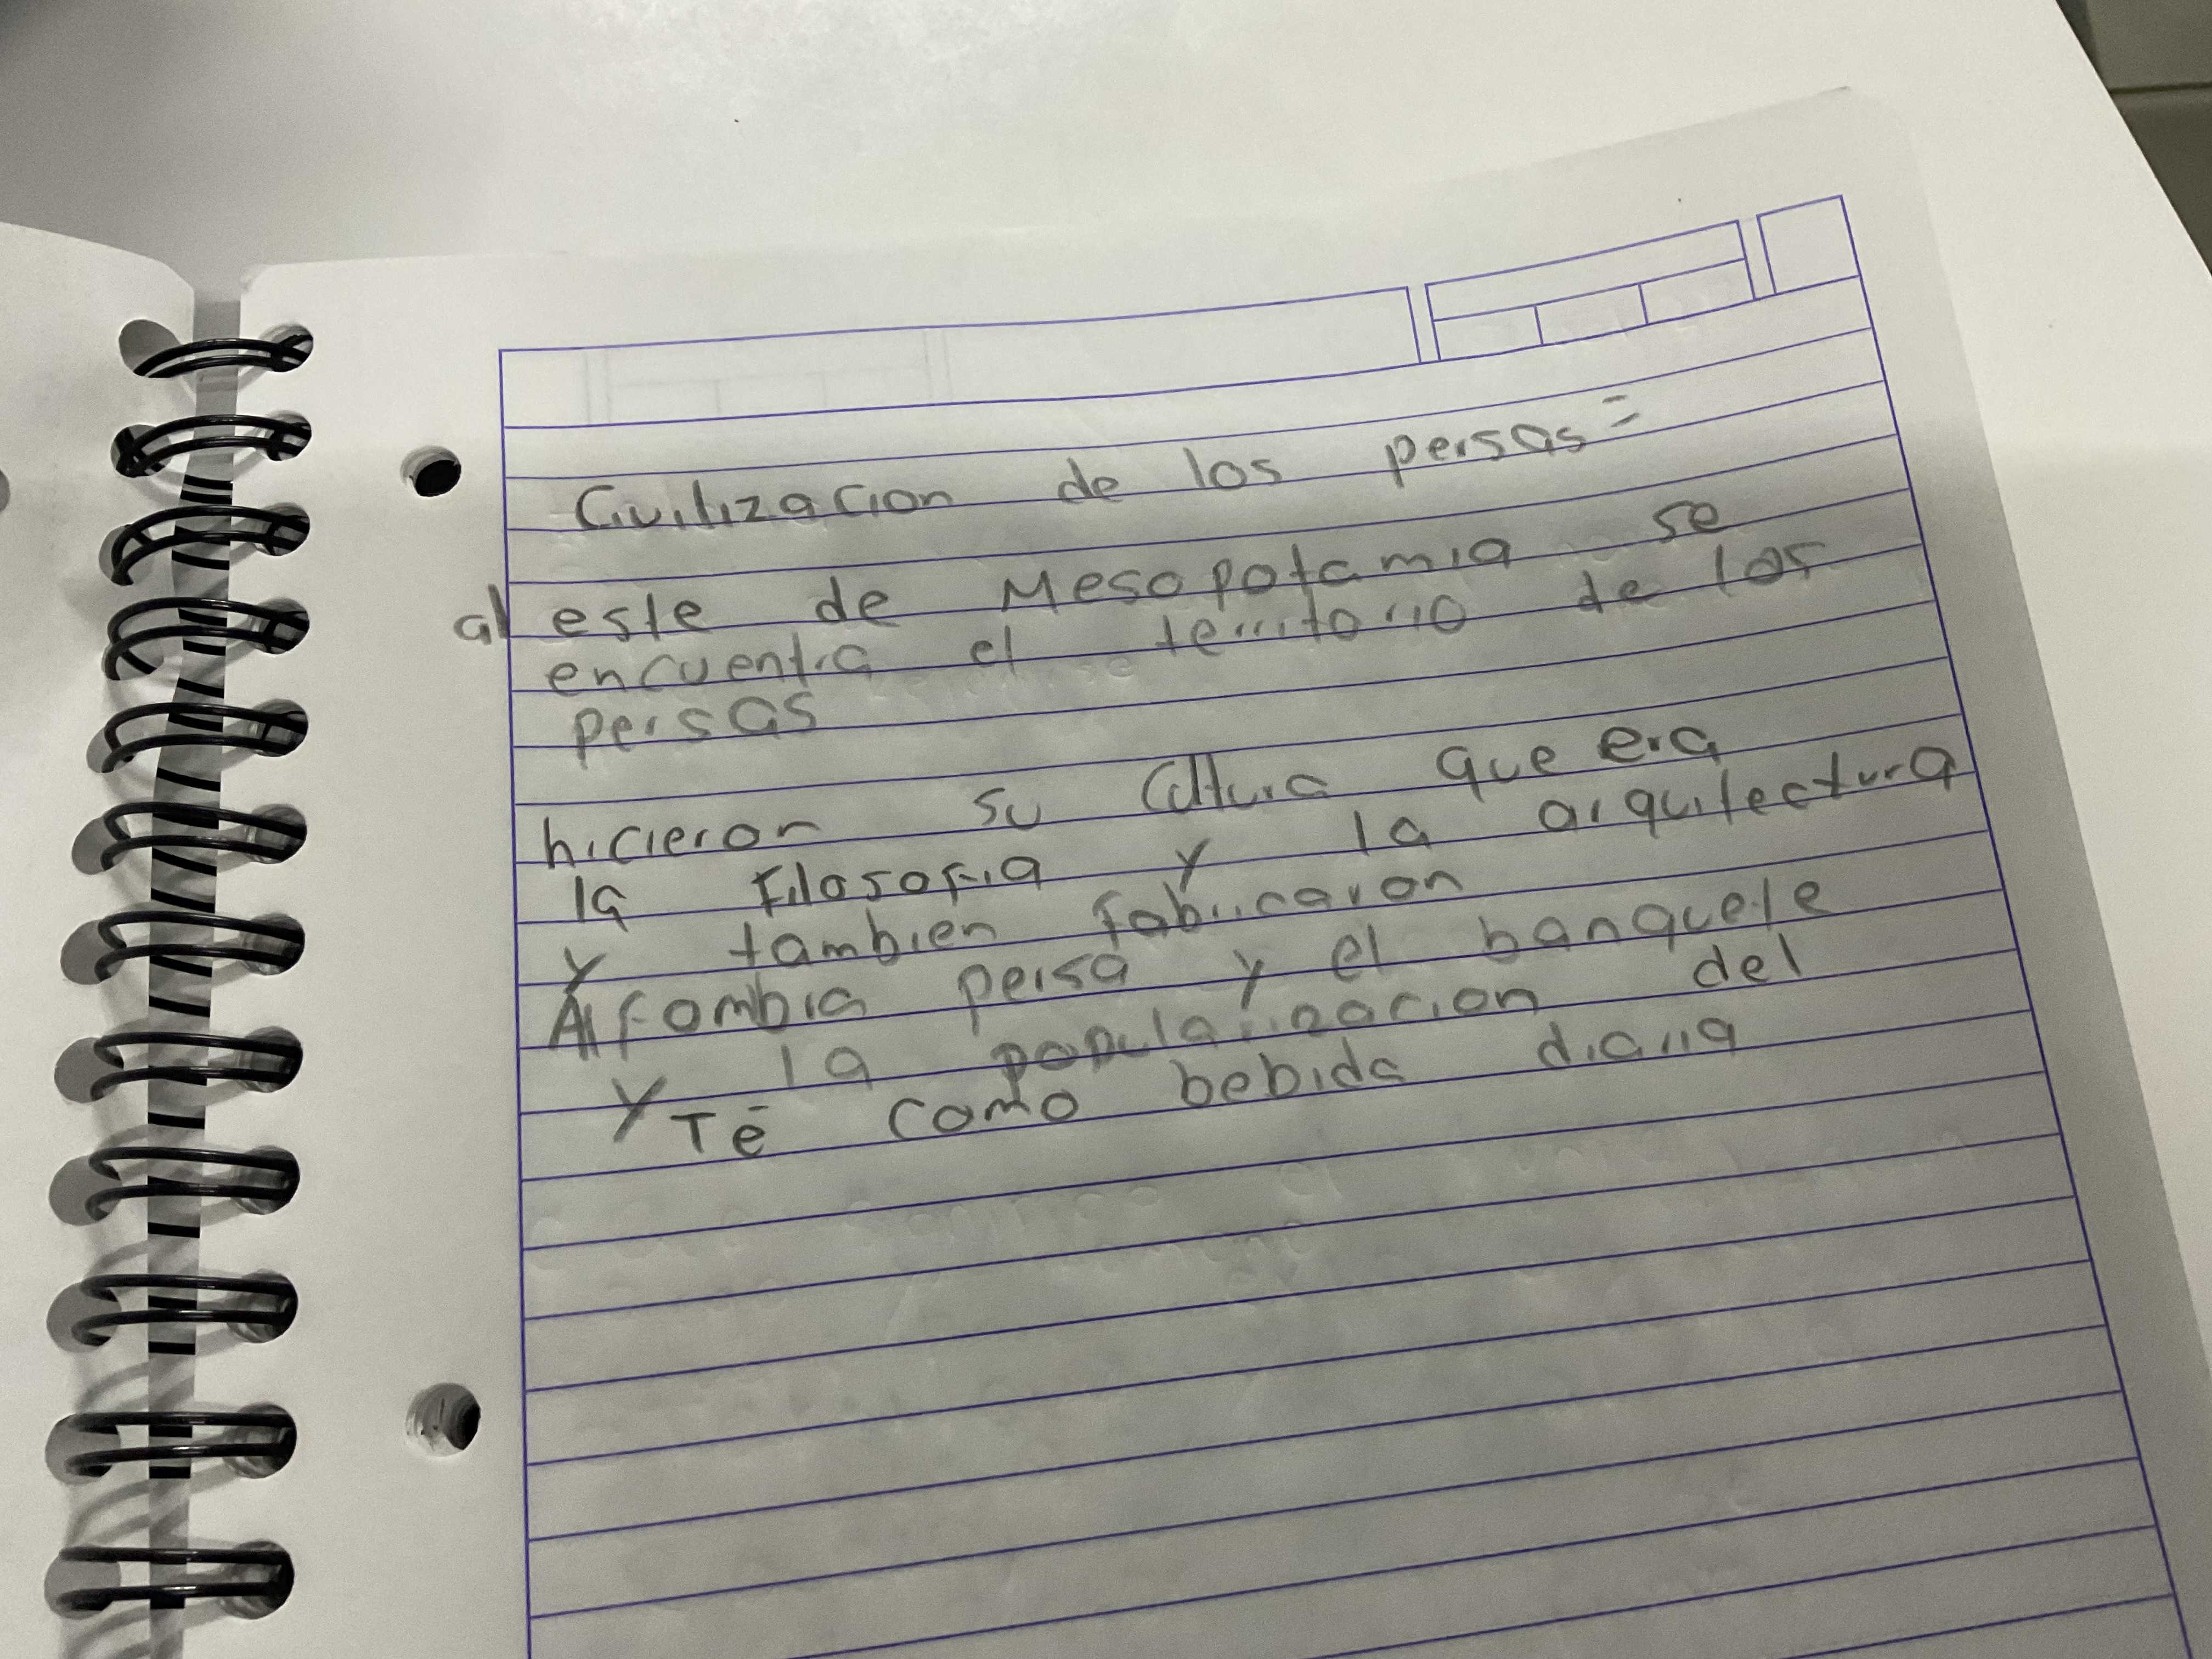 Civilizacion de los persas=
al este de Mesopotamia se
encuentra el territorio de los
persas
hicieron su Cultura que era
la Filosofia y la arquitectura
y tambien fabricaron
Alfombra persa y el banquete
y la popularizacion del
Té como bebida diaria